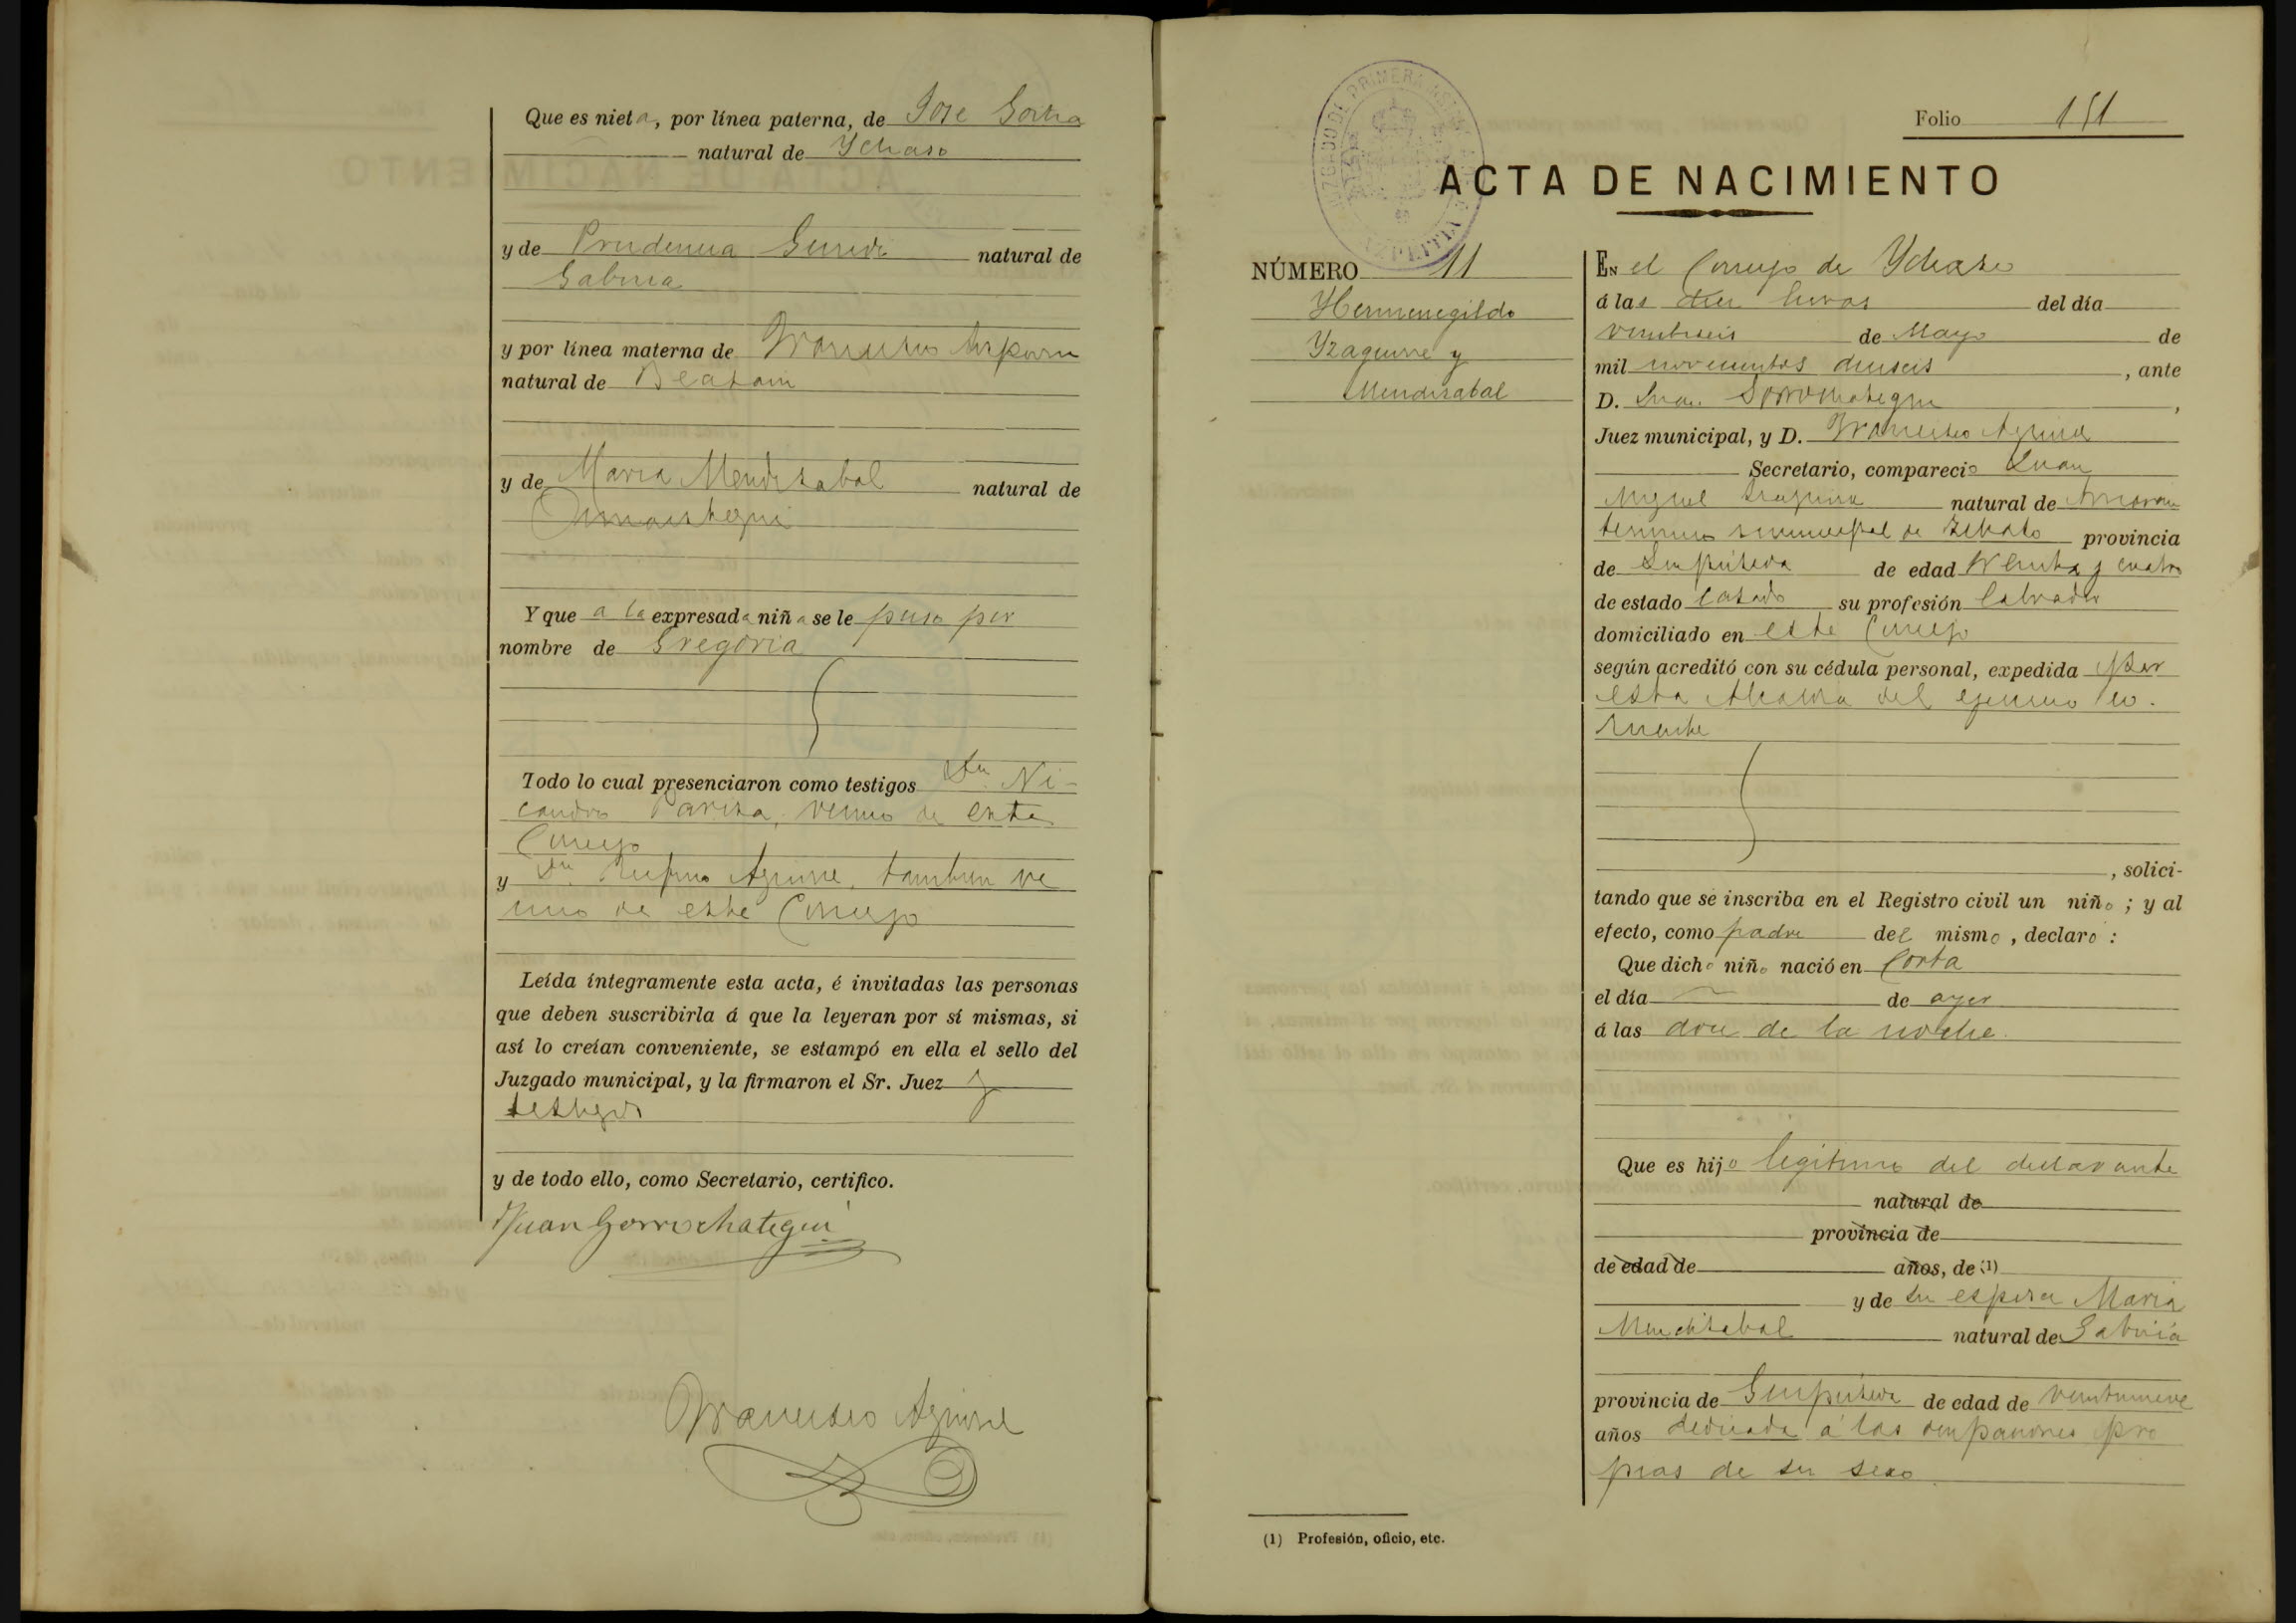 Que es nieta, por línea paterna, de Jose Goitia
natural de Ychaso
y de Prudencia natural de
Gabiria
y por línea materna de Francisco
natural de Beasain
y de Maria Mendizabal natural de
Ormaiztegui
Y que a la expresada niña se le puso por
nombre de Gregoria
Todo lo cual presenciaron como testigos Dn Ni-
candro vecino de este
Concejo
y Dn Rufino Aguirre, tambien ve
cino de este Concejo
Leída íntegramente esta acta, é invitadas las personas
que deben suscribirla á que la leyeran por sí mismas, si
así lo creían conveniente, se estampó en ella el sello del
Juzgado municipal, y la firmaron el Sr. Juez y
testigos
y de todo ello, como Secretario, certifico.
Juan Gorrochategui
Francisco Aguirre
Folio 151
ACTA DE NACIMIENTO
NÚMERO 11
Hermenegildo
Yzaguirre y
Mendizabal
EN el Concejo de Ychaso
á las diez horas del día
veintiseis de Mayo de
mil novecientos dieciseis, ante
D. Juan Gorrochategui,
Juez municipal, y D. Francisco Aguirre
Secretario, compareció Juan
Miguel Izaguirre natural de
termino municipal de provincia
de Guipúzcoa de edad treinta y cuatro
de estado casado su profesión labrador
domiciliado en este Concejo
según acreditó con su cédula personal, expedida por
esta Alcaldia del ejercicio co-
rriente
, solici-
tando que se inscriba en el Registro civil un niño; y al
efecto, como padre del mismo, declaró:
Que dicho niño nació en Corta
el día de ayer
á las doce de la noche.
Que es hijo legitimo del declarante
natural de
provincia de
de edad de años, de (1)
y de su esposa Maria
Mendizabal natural de Gabiria
provincia de Guipúzcoa de edad de veintinueve
años dedicada á las ocupaciones pro
pias de su sexo
(1) Profesión, oficio, etc.